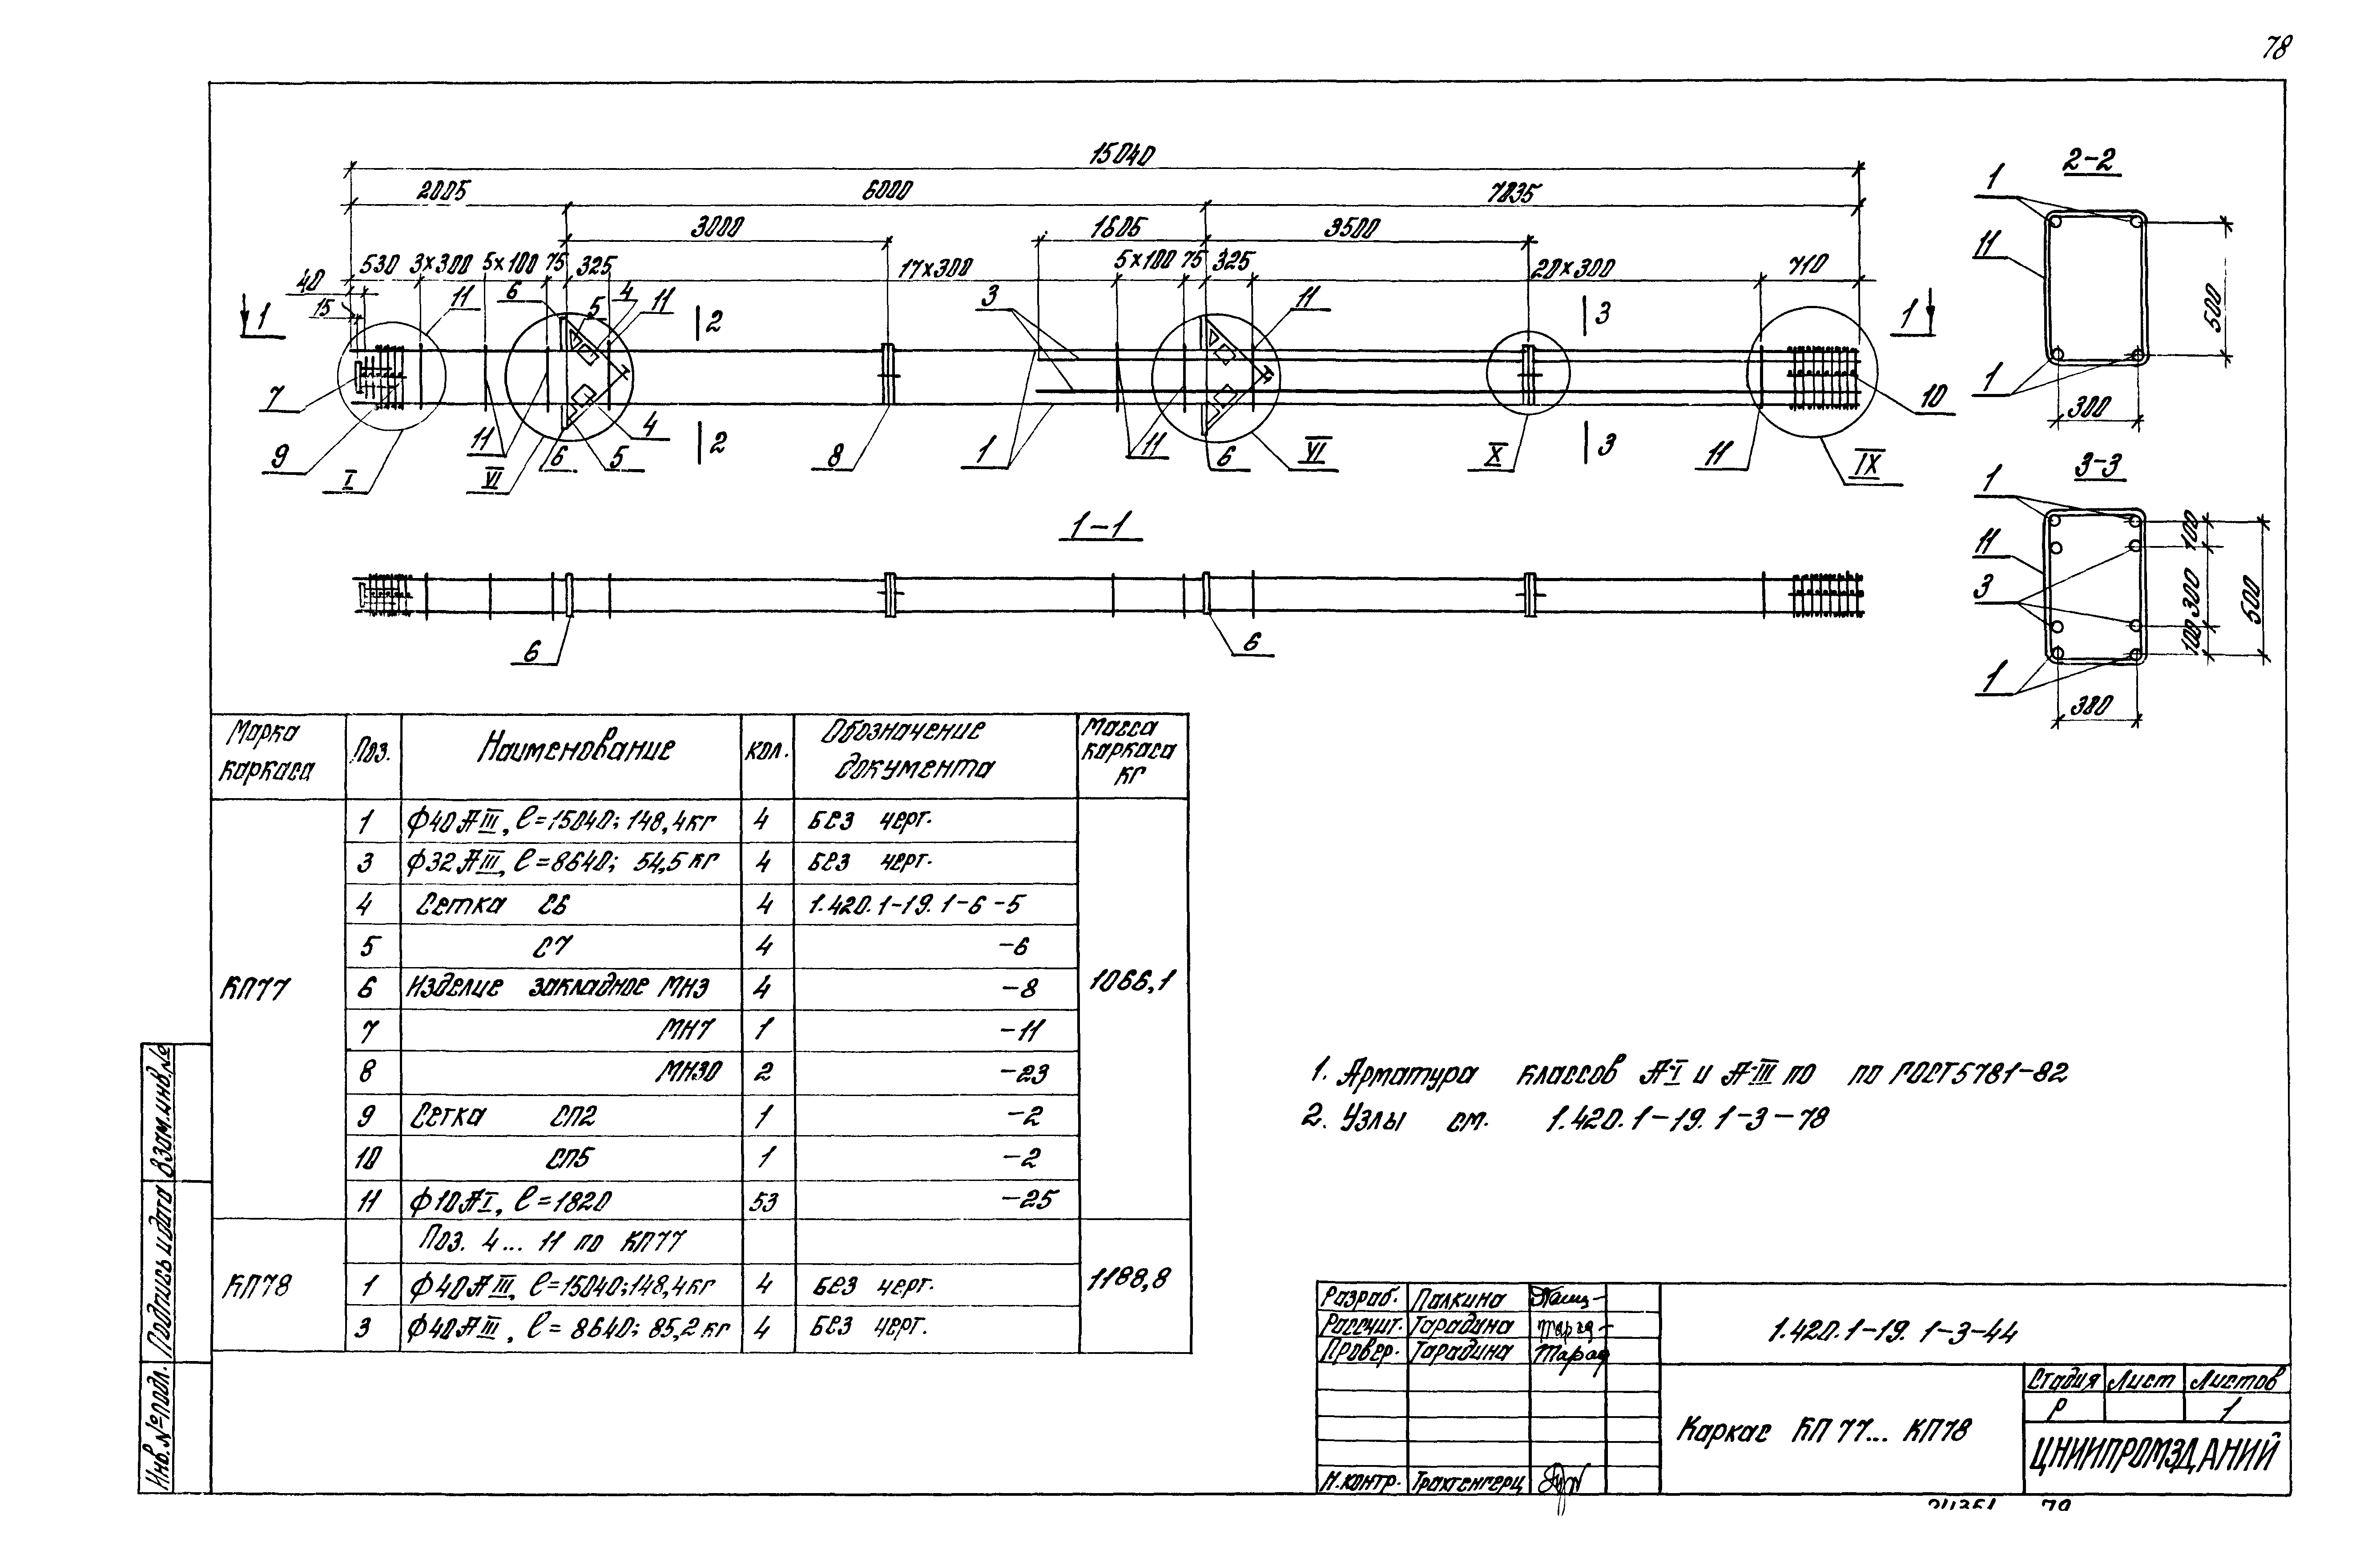 78
15040
2005 6000 7035
3000 1605 3500
530 3×300 5×100 75 325 17×300 5×100 75 325 20×300 710
40
15
11 6 5 4 11 3 11
1 2 3 1
7 9 I 11 VI 6 5 4 2 8 1 11 6 VI X 3 11 IX 10
1-1
6 6
2-2
1
11
500
1
300
3-3
1
11
3
100
300
100
500
1
380
Марка каркаса Поз. Наименование Кол. Обозначение документа Масса каркаса кг
КП77 1066,1
1 ф40АIII, ℓ=15040; 148,4кг 4 Без черт.
3 ф32АIII, ℓ=8640; 54,5кг 4 Без черт.
4 Сетка С6 4 1.420.1-19.1-6-5
5 С7 4 -6
6 Изделие закладное МН3 4 -8
7 МН7 1 -11
8 МН30 2 -23
9 Сетка СП2 1 -2
10 СП5 1 -2
11 ф10АI, ℓ=1820 53 -25
КП78 1188,8
Поз. 4... 11 по КП77
1 ф40АIII, ℓ=15040; 148,4кг 4 Без черт.
3 ф40АIII, ℓ=8640; 85,2кг 4 Без черт.
1. Арматура классов А-I и А-III по по ГОСТ 5781-82
2. Узлы см. 1.420.1-19.1-3-78
Взам.инв.№
Подпись и дата
Инв.№ подл.
Разраб. Палкина
Рассчит. Тарадина
Провер. Тарадина
Н.контр. Трахтенгерц
1.420.1-19. 1-3-44
Каркас КП 77... КП78
Стадия Лист Листов
Р 1
ЦНИИПРОМЗДАНИЙ